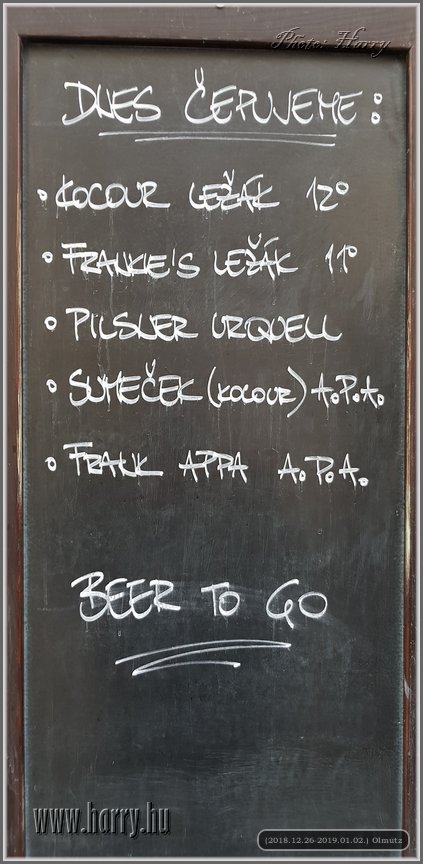 Photo: Harry
DNES ČEPUJEME:
• KOCOUR LEŽÁK 12°
• FRANKIE'S LEŽÁK 11°
• PILSNER URQUELL
• SUMEČEK (KOCOUR) A.P.A.
• FRANK APPA A.P.A.
BEER TO GO
www.harry.hu
(2018.12.26-2019.01.02.) Olmutz